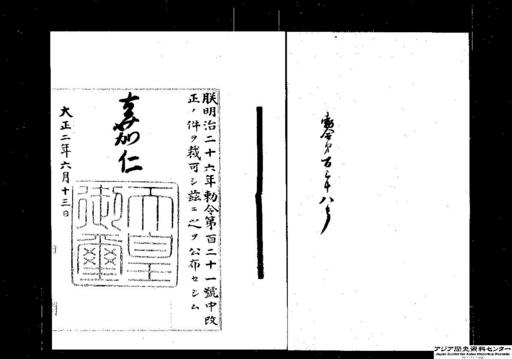 勅令第百七十八号
朕明治二十六年勅令第百二十一號中改
正ノ件ヲ裁可シ茲ニ之ヲ公布セシム
嘉仁
天皇
御璽
大正二年六月十三日
アジア歴史資料センター
Japan Center for Asian Historical Records